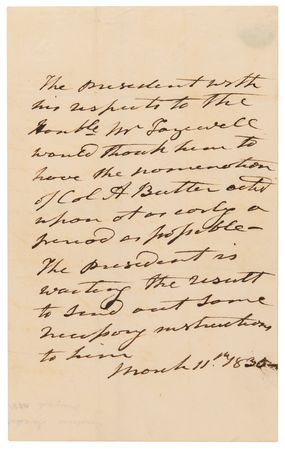 The President with
his respects to the
Honble Mr Tazewell
would thank him to
have the nomenation
of Col A Butler acted
upon at as early a
period as possible—
The President is
waiting the result
to send out some
necessary instructions
to him
March 11th 1830